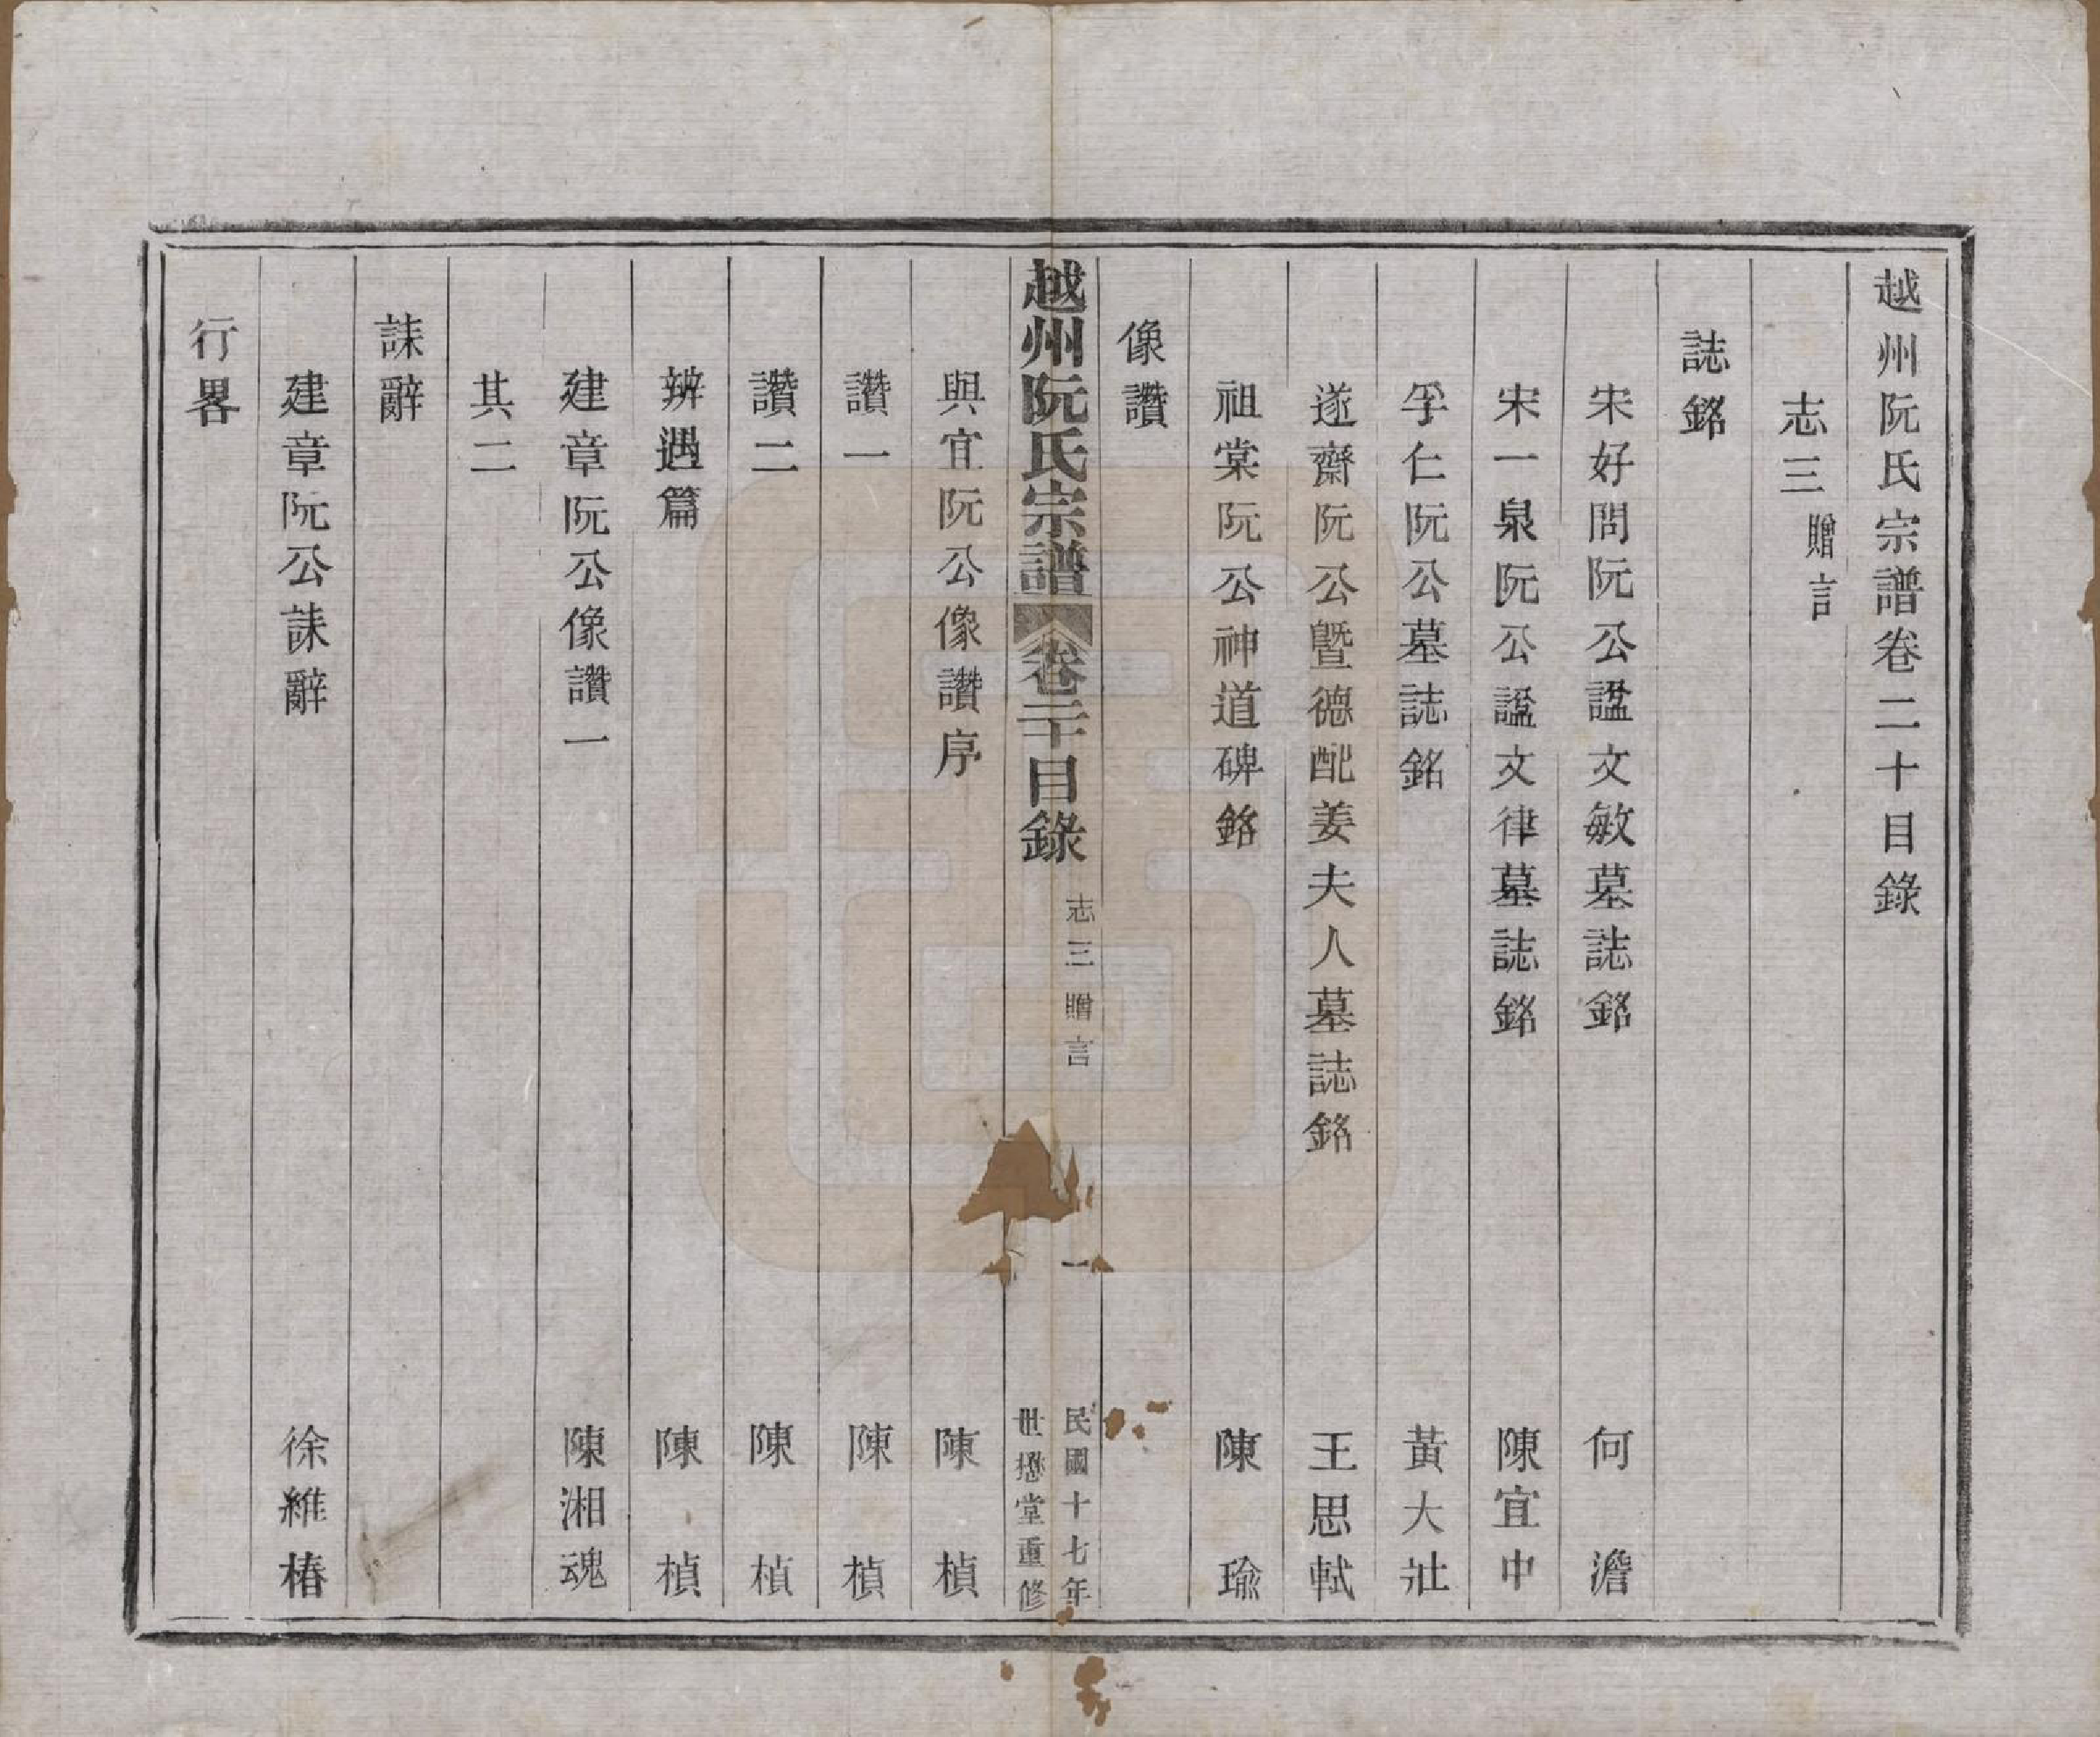 越州阮氏宗譜卷二十目錄
志三 贈言
誌銘
宋好問阮公諡文敏墓誌銘 何澹
宋一泉阮公諡文律墓誌銘 陳宜中
孚仁阮公墓誌銘 黃大壯
遂齋阮公暨德配姜夫人墓誌銘 王思軾
祖棠阮公神道碑銘 陳瑜
像讚
越州阮氏宗譜 卷二十目錄 志三贈言 一 民國十七年
世懋堂重修
與宜阮公像讚序 陳楨
讚一 陳楨
讚二 陳楨
辨遇篇 陳楨
建章阮公像讚一 陳湘魂
其二
誄辭
建章阮公誄辭 徐維椿
行畧